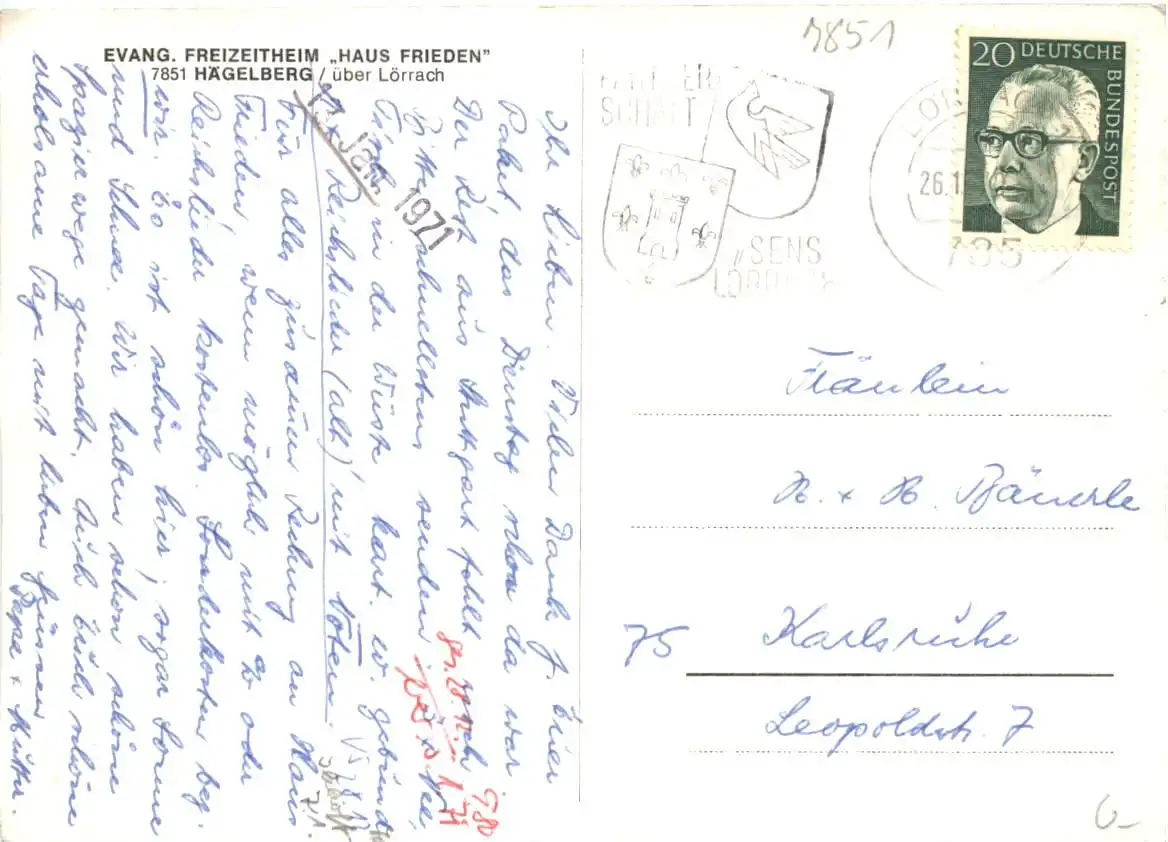 EVANG. FREIZEITHEIM „HAUS FRIEDEN"
7851 HÄGELBERG / über Lörrach
7851
20 DEUTSCHE
BUNDESPOST
SCHAFT
„SENS
26.1
785
Jan. 1971
Ihr Lieben. Vielen Dank f. Euer
Paket, das Dienstag schon da war.
Der Rest aus Stuttgart fehlt noch.
Bitte schnellstens senden:
in der Wüste kart. w.
Reichslieder (alt) mit Noten.
Für alles zusammen Rechnung an Haus
Frieden, wenn möglich mit % oder
Reichslieder kostenlos. Sonderkosten beg.
wir. Es ist schön hier, sogar Sonne
und Schnee. Wir haben schon schöne
Spazierwege gemacht. Auch Euch schöne
erholsame Tage mit lieben Grüssen
Papa + Mutter.
Fräulein
Bäuerle
75 Karlsruhe
Leopoldstr. 7